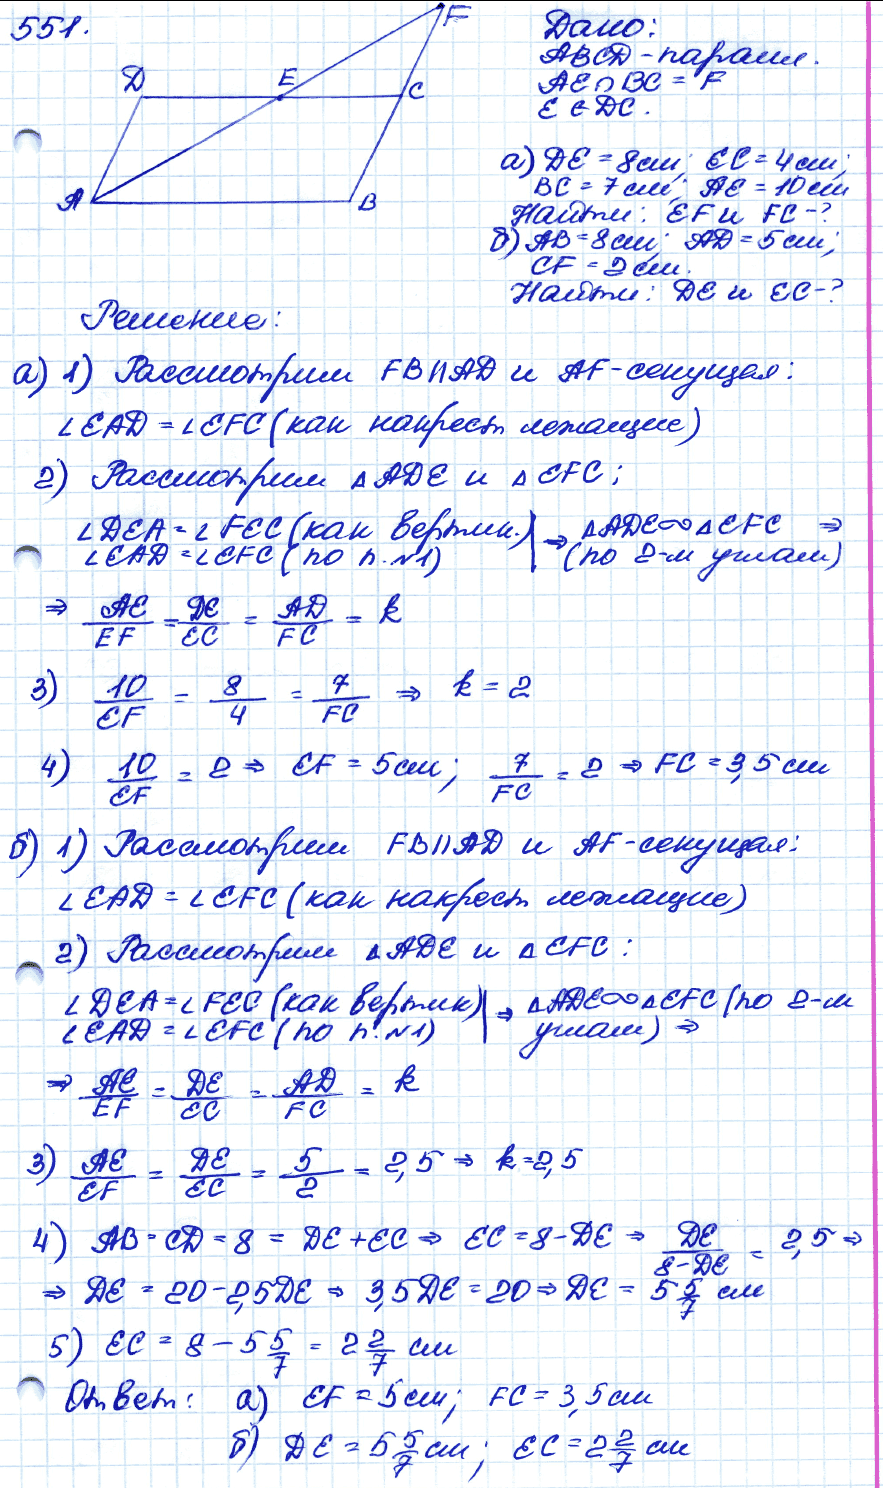 551.
F
D
E
C
A
B
Дано:
ABCD - паралл.
AE ∩ BC = F
E ∈ DC.
а) DE = 8 см; EC = 4 см;
BC = 7 см; AE = 10 см
Найти: EF и FC - ?
б) AB = 8 см; AD = 5 см;
CF = 2 см.
Найти: DE и EC - ?
Решение:
а) 1) Рассмотрим FB || AD и AF - секущая:
∠EAD = ∠EFC (как накрест лежащие)
2) Рассмотрим △ADE и △EFC;
∠DEA = ∠FEC (как вертик.) | ⇒ △ADE ∞ △EFC ⇒
∠EAD = ∠EFC (по п. №1) | (по 2-м углам)
⇒ AE/EF = DE/EC = AD/FC = k
3) 10/EF = 8/4 = 7/FC ⇒ k = 2
4) 10/EF = 2 ⇒ EF = 5 см; 7/FC = 2 ⇒ FC = 3,5 см
б) 1) Рассмотрим FB || AD и AF - секущая:
∠EAD = ∠EFC (как накрест лежащие)
2) Рассмотрим △ADE и △EFC:
∠DEA = ∠FEC (как вертик) | ⇒ △ADE ∞ △EFC (по 2-м
∠EAD = ∠EFC (по п. №1) | углам) ⇒
⇒ AE/EF = DE/EC = AD/FC = k
3) AE/EF = DE/EC = 5/2 = 2,5 ⇒ k = 2,5
4) AB = CD = 8 = DE + EC ⇒ EC = 8 - DE ⇒ DE/8-DE = 2,5 ⇒
⇒ DE = 20 - 2,5DE ⇒ 3,5DE = 20 ⇒ DE = 5 5/7 см
5) EC = 8 - 5 5/7 = 2 2/7 см
Ответ: а) EF = 5 см; FC = 3,5 см
б) DE = 5 5/7 см; EC = 2 2/7 см